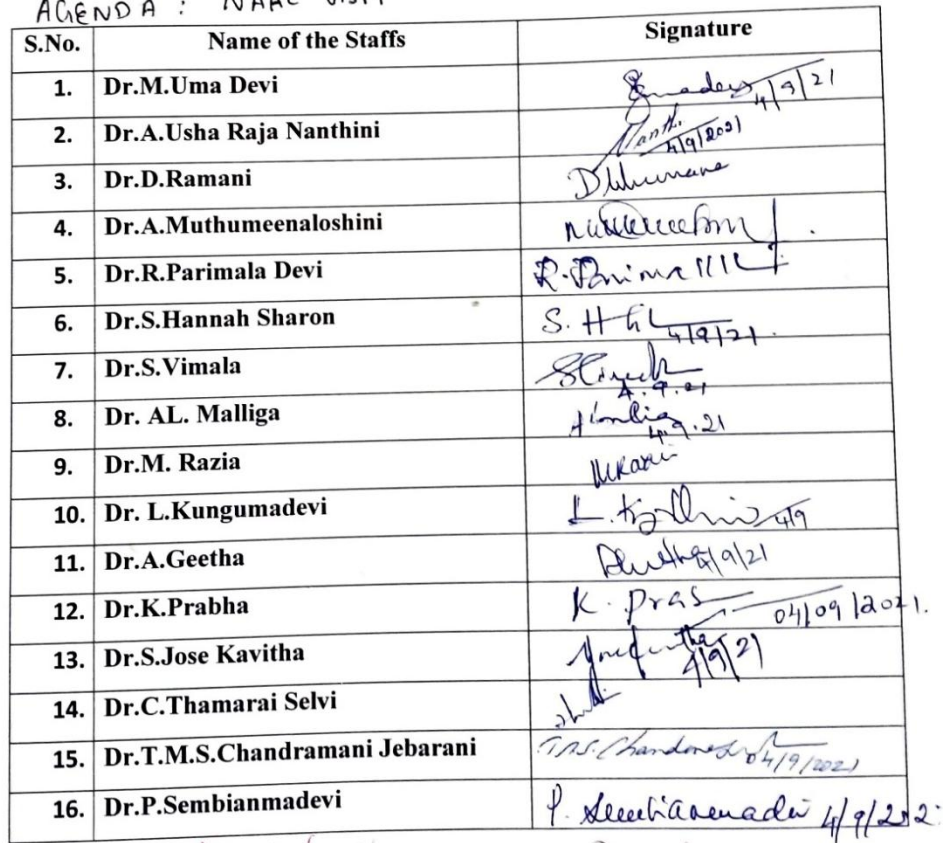 AGENDA : NAAC VISIT
S.No. Name of the Staffs Signature
1. Dr.M.Uma Devi 4/9/21
2. Dr.A.Usha Raja Nanthini 4/9/2021
3. Dr.D.Ramani
4. Dr.A.Muthumeenaloshini
5. Dr.R.Parimala Devi
6. Dr.S.Hannah Sharon 4/9/21.
7. Dr.S.Vimala 4.9.21
8. Dr. AL. Malliga 4.9.21
9. Dr.M. Razia
10. Dr. L.Kungumadevi 4/9
11. Dr.A.Geetha 4/9/21
12. Dr.K.Prabha 04/09/2021.
13. Dr.S.Jose Kavitha 4/9/21
14. Dr.C.Thamarai Selvi
15. Dr.T.M.S.Chandramani Jebarani 04/9/2021
16. Dr.P.Sembianmadevi